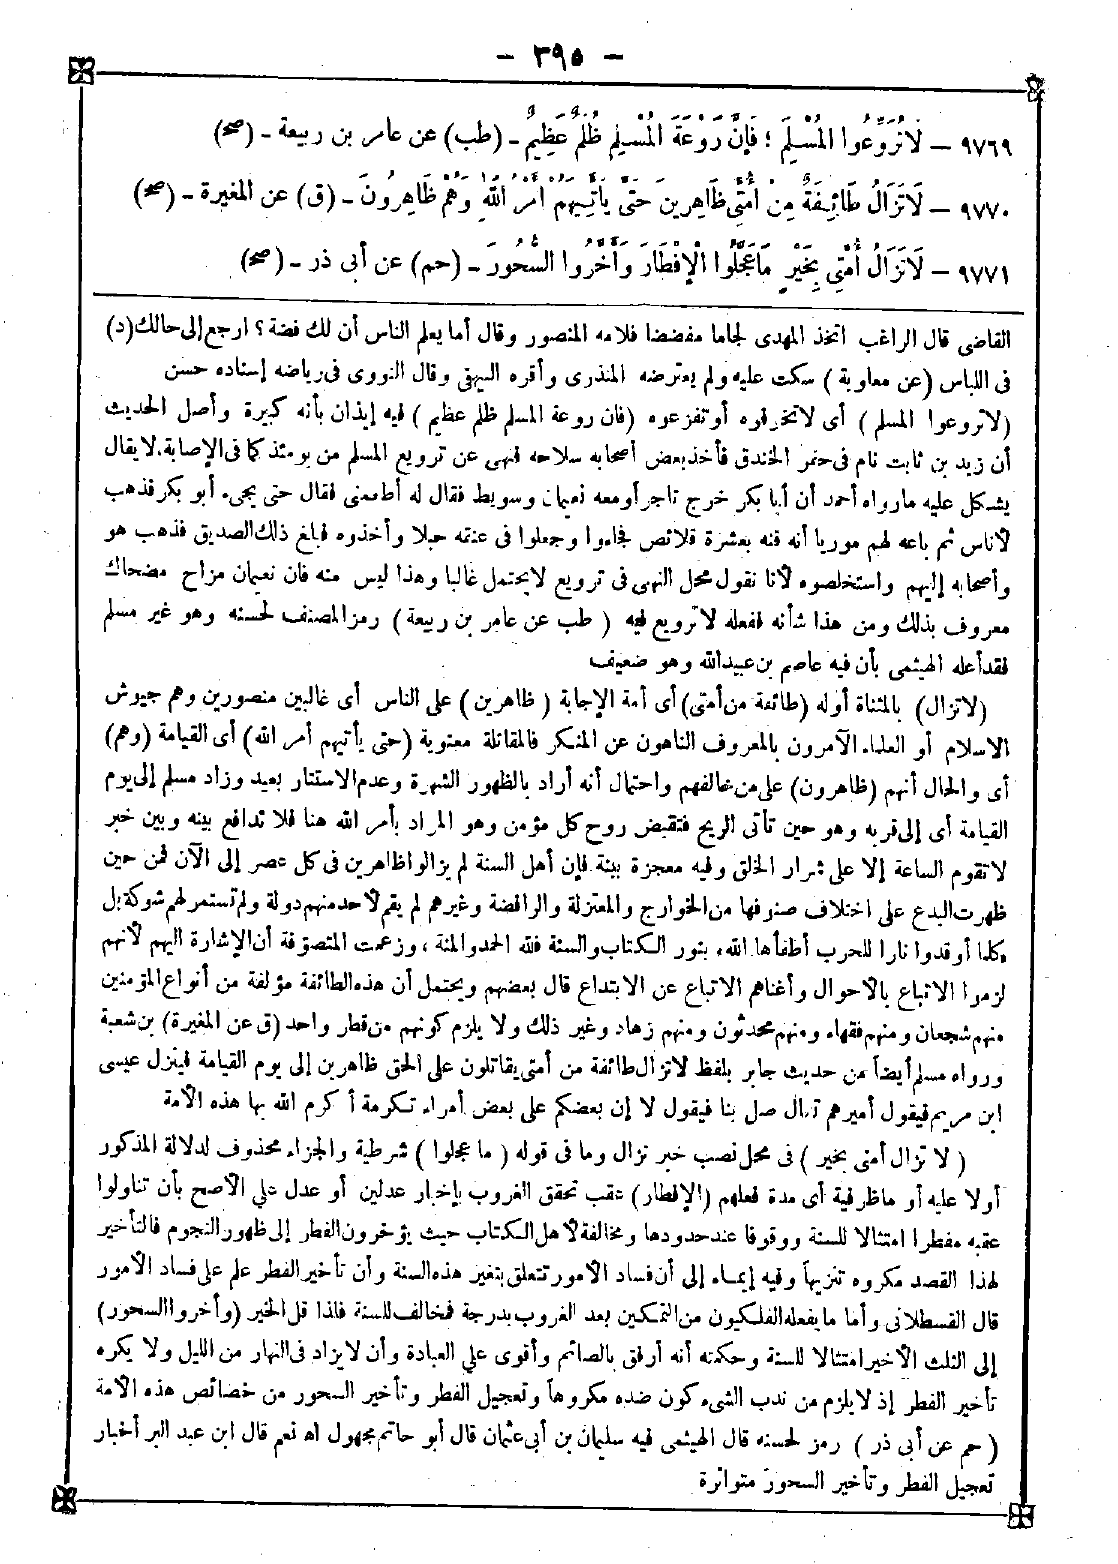 - ٣٩٥ -
٩٧٦٩ – لَا تُرَوِّعُوا المُسْلِمَ ؛ فَإِنَّ رَوْعَةَ الْمُسْلِمِ ظُلْمٌ عَظِيمٌ - (طب) عن عامر بن ربيعة - (صح)
٩٧٧٠ – لَا تَزَالُ طَائِفَةٌ مِنْ أُمَّتِي ظَاهِرِينَ حَتَّى يَأْتِيَهُمْ أَمْرُ اللهِ وَهُمْ ظَاهِرُونَ - (ق) عن المغيرة - (صح)
٩٧٧١ – لَا تَزَالُ أُمَّتِي بِخَيْرٍ مَا عَجَّلُوا الْإِفْطَارَ وَأَخَّرُوا السُّحُورَ - (حم) عن أبى ذر - (صح)
القاضى قال الراغب اتخذ المهدى لجاما مفضضا فلامه المنصور وقال أما يعلم الناس أن لك فضة؟ ارجع إلى حالك (د)
فى اللباس (عن معاوية) سكت عليه ولم يعترضه المنذرى وأقره البيهقى وقال النووى فى رياضه إسناده حسن
(لا تروعوا المسلم) أى لا تخوفوه أو تفزعوه (فان روعة المسلم ظلم عظيم) فيه إيذان بأنه كبيرة وأصل الحديث
أن زيد بن ثابت نام فى حفر الخندق فأخذ بعض أصحابه سلاحه فنهى عن ترويع المسلم من يومئذ كما فى الإصابة، لا يقال
يشكل عليه مارواه أحمد أن أبا بكر خرج تاجرا ومعه نعيمان وسويط فقال له أطعمنى فقال حتى يجىء أبو بكر فذهب
لأناس ثم باعه لهم موريا أنه قنه بعشرة قلائص فجاءوا وجعلوا فى عنقه حبلا وأخذوه فبلغ ذلك الصديق فذهب هو
وأصحابه إليهم واستخلصوه لأنا نقول محل النهى فى ترويع لا يحتمل غالبا وهذا ليس منه فان نعيمان مزاح مضحاك
معروف بذلك ومن هذا شأنه ففعله لا ترويع فيه (طب عن عامر بن ربيعة) رمز المصنف لحسنه وهو غير مسلم
فقد أعله الهيثمى بأن فيه عاصم بن عبيدالله وهو ضعيف
(لا تزال) بالمثناة أوله (طائفة من أمتى) أى أمة الإجابة (ظاهرين) على الناس أى غالبين منصورين وهم جيوش
الاسلام أو العلماء الآمرون بالمعروف الناهون عن المنكر فالمقاتلة معنوية (حتى يأتيهم أمر الله) أى القيامة (وهم)
أى والحال أنهم (ظاهرون) على من خالفهم واحتمال أنه أراد بالظهور الشهرة وعدم الاستتار بعيد وزاد مسلم إلى يوم
القيامة أى إلى قربه وهو حين تأتى الريح فتقبض روح كل مؤمن وهو المراد بأمر الله هنا فلا تدافع بينه وبين خبر
لا تقوم الساعة إلا على شرار الخلق وفيه معجزة بينة فإن أهل السنة لم يزالوا ظاهرين فى كل عصر إلى الآن فمن حين
ظهرت البدع على اختلاف صنوفها من الخوارج والمعتزلة والرافضة وغيرهم لم يقم لأحد منهم دولة ولم تستمر لهم شوكة بل
كلما أوقدوا نارا للحرب أطفأها الله، بنور الكتاب والسنة فلله الحمد والمنة ، وزعمت المتصوفة أن الإشارة اليهم لأنهم
لزموا الاتباع بالأحوال وأغناهم الاتباع عن الابتداع قال بعضهم ويحتمل أن هذه الطائفة مؤلفة من أنواع المؤمنين
منهم شجعان ومنهم فقهاء ومنهم محدثون ومنهم زهاد وغير ذلك ولا يلزم كونهم من قطر واحد (ق عن المغيرة) بن شعبة
ورواه مسلم أيضاً عن حديث جابر بلفظ لا تزال طائفة من أمتى يقاتلون على الحق ظاهرين إلى يوم القيامة فينزل عيسى
ابن مريم فيقول أميرهم تعال صل بنا فيقول لا إن بعضكم على بعض أمراء تكرمة أكرم الله بها هذه الأمة
(لا تزال أمتى بخير) فى محل نصب خبر تزال وما فى قوله (ما عجلوا) شرطية والجزاء محذوف لدلالة المذكور
أولا عليه أو ما ظرفية أى مدة فعلهم (الإفطار) عقب تحقق الغروب بإخبار عدلين أو عدل على الأصح بأن تناولوا
عقبه مفطرا امتثالا للسنة ووقوفا عند حدودها ومخالفة لأهل الكتاب حيث يؤخرون الفطر إلى ظهور النجوم فالتأخير
لهذا القصد مكروه تنزيهاً وفيه إيماء إلى أن فساد الأمور تتعلق بتغير هذه السنة وأن تأخير الفطر علم على فساد الأمور
قال القسطلانى وأما ما يفعله الفلكيون من التمكين بعد الغروب بدرجة فمخالف للسنة فلذا قل الخير (وأخروا السحور)
إلى الثلث الأخير امتثالا للسنة وحكمته أنه أرفق بالصائم وأقوى على العبادة وأن لا يزاد فى النهار من الليل ولا يكره
تأخير الفطر إذ لا يلزم من ندب الشىء كون ضده مكروهاً وتعجيل الفطر وتأخير السحور من خصائص هذه الأمة
(حم عن أبى ذر) رمز لحسنه قال الهيثمى فيه سليمان بن أبى عثمان قال أبو حاتم مجهول اهـ نعم قال ابن عبد البر أخبار
تعجيل الفطر وتأخير السحور متواترة